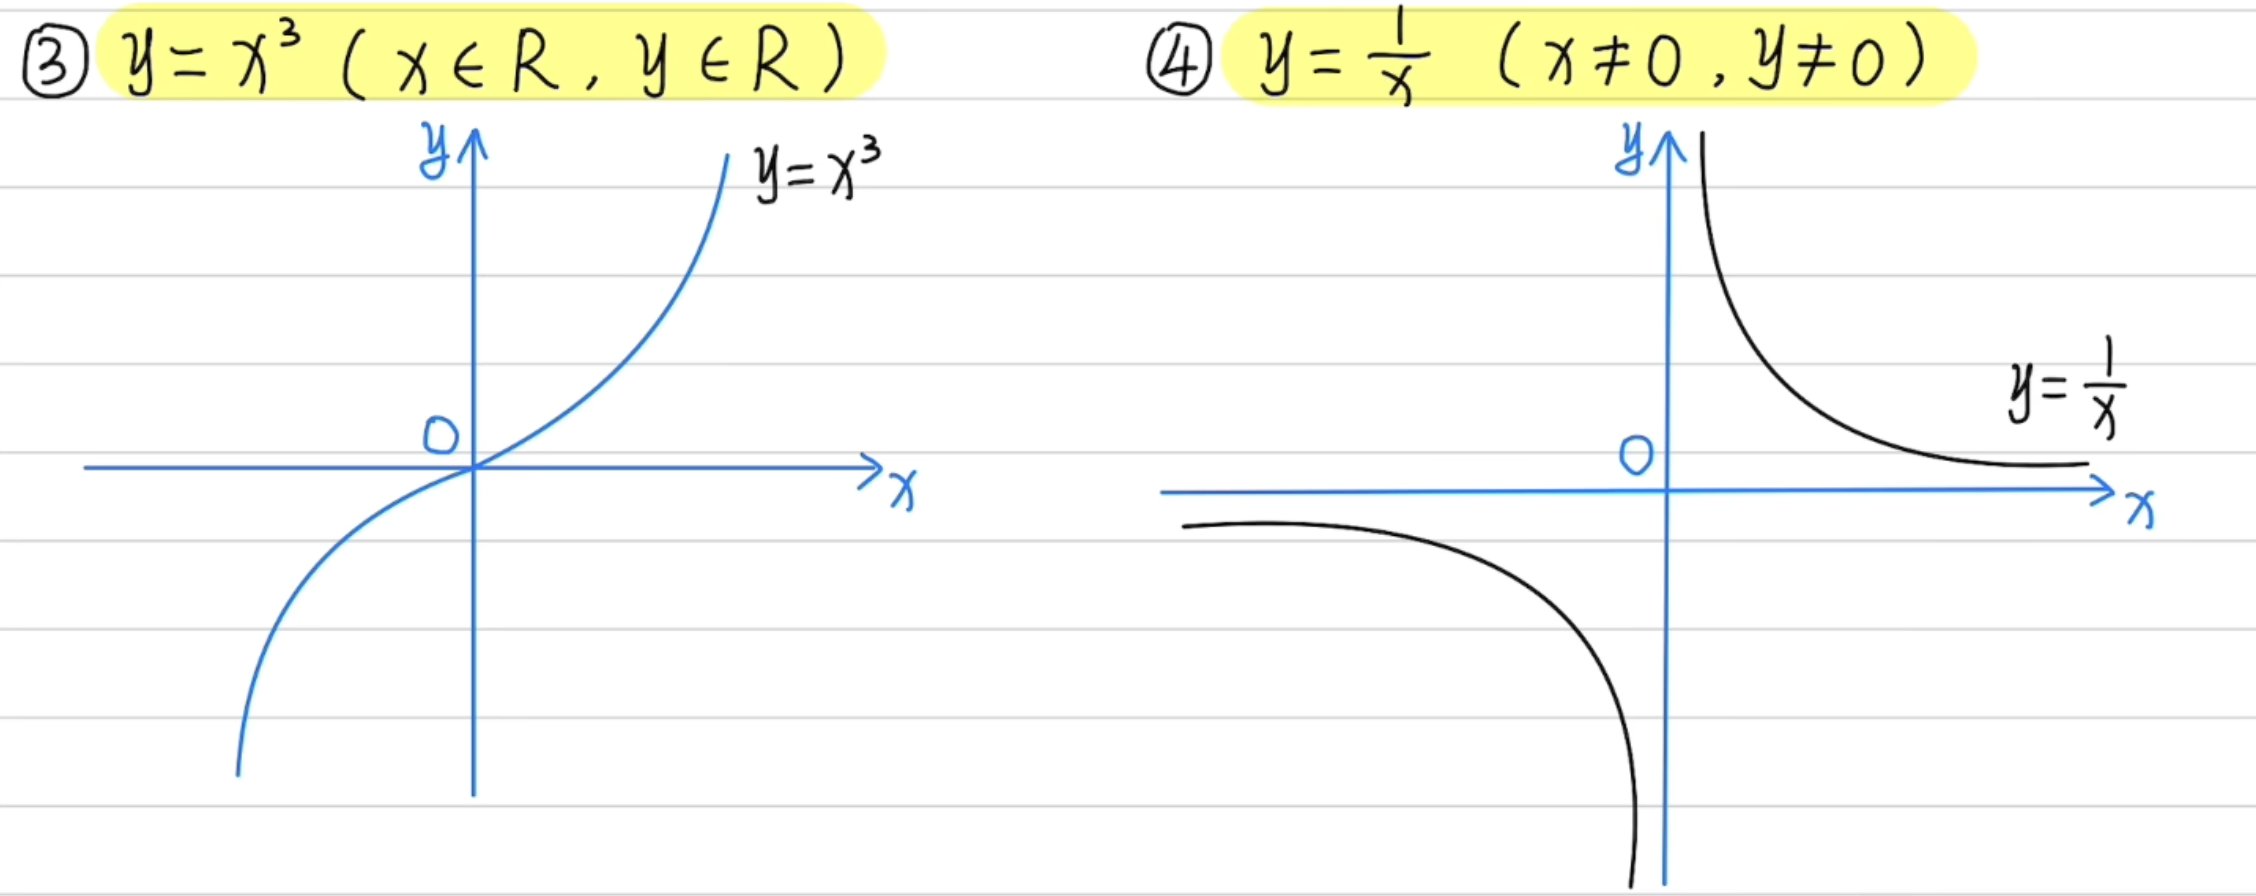 ③ y=x³ (x∈R, y∈R)
y
y=x³
O
x
④ y=1/x (x≠0, y≠0)
y
y=1/x
O
x